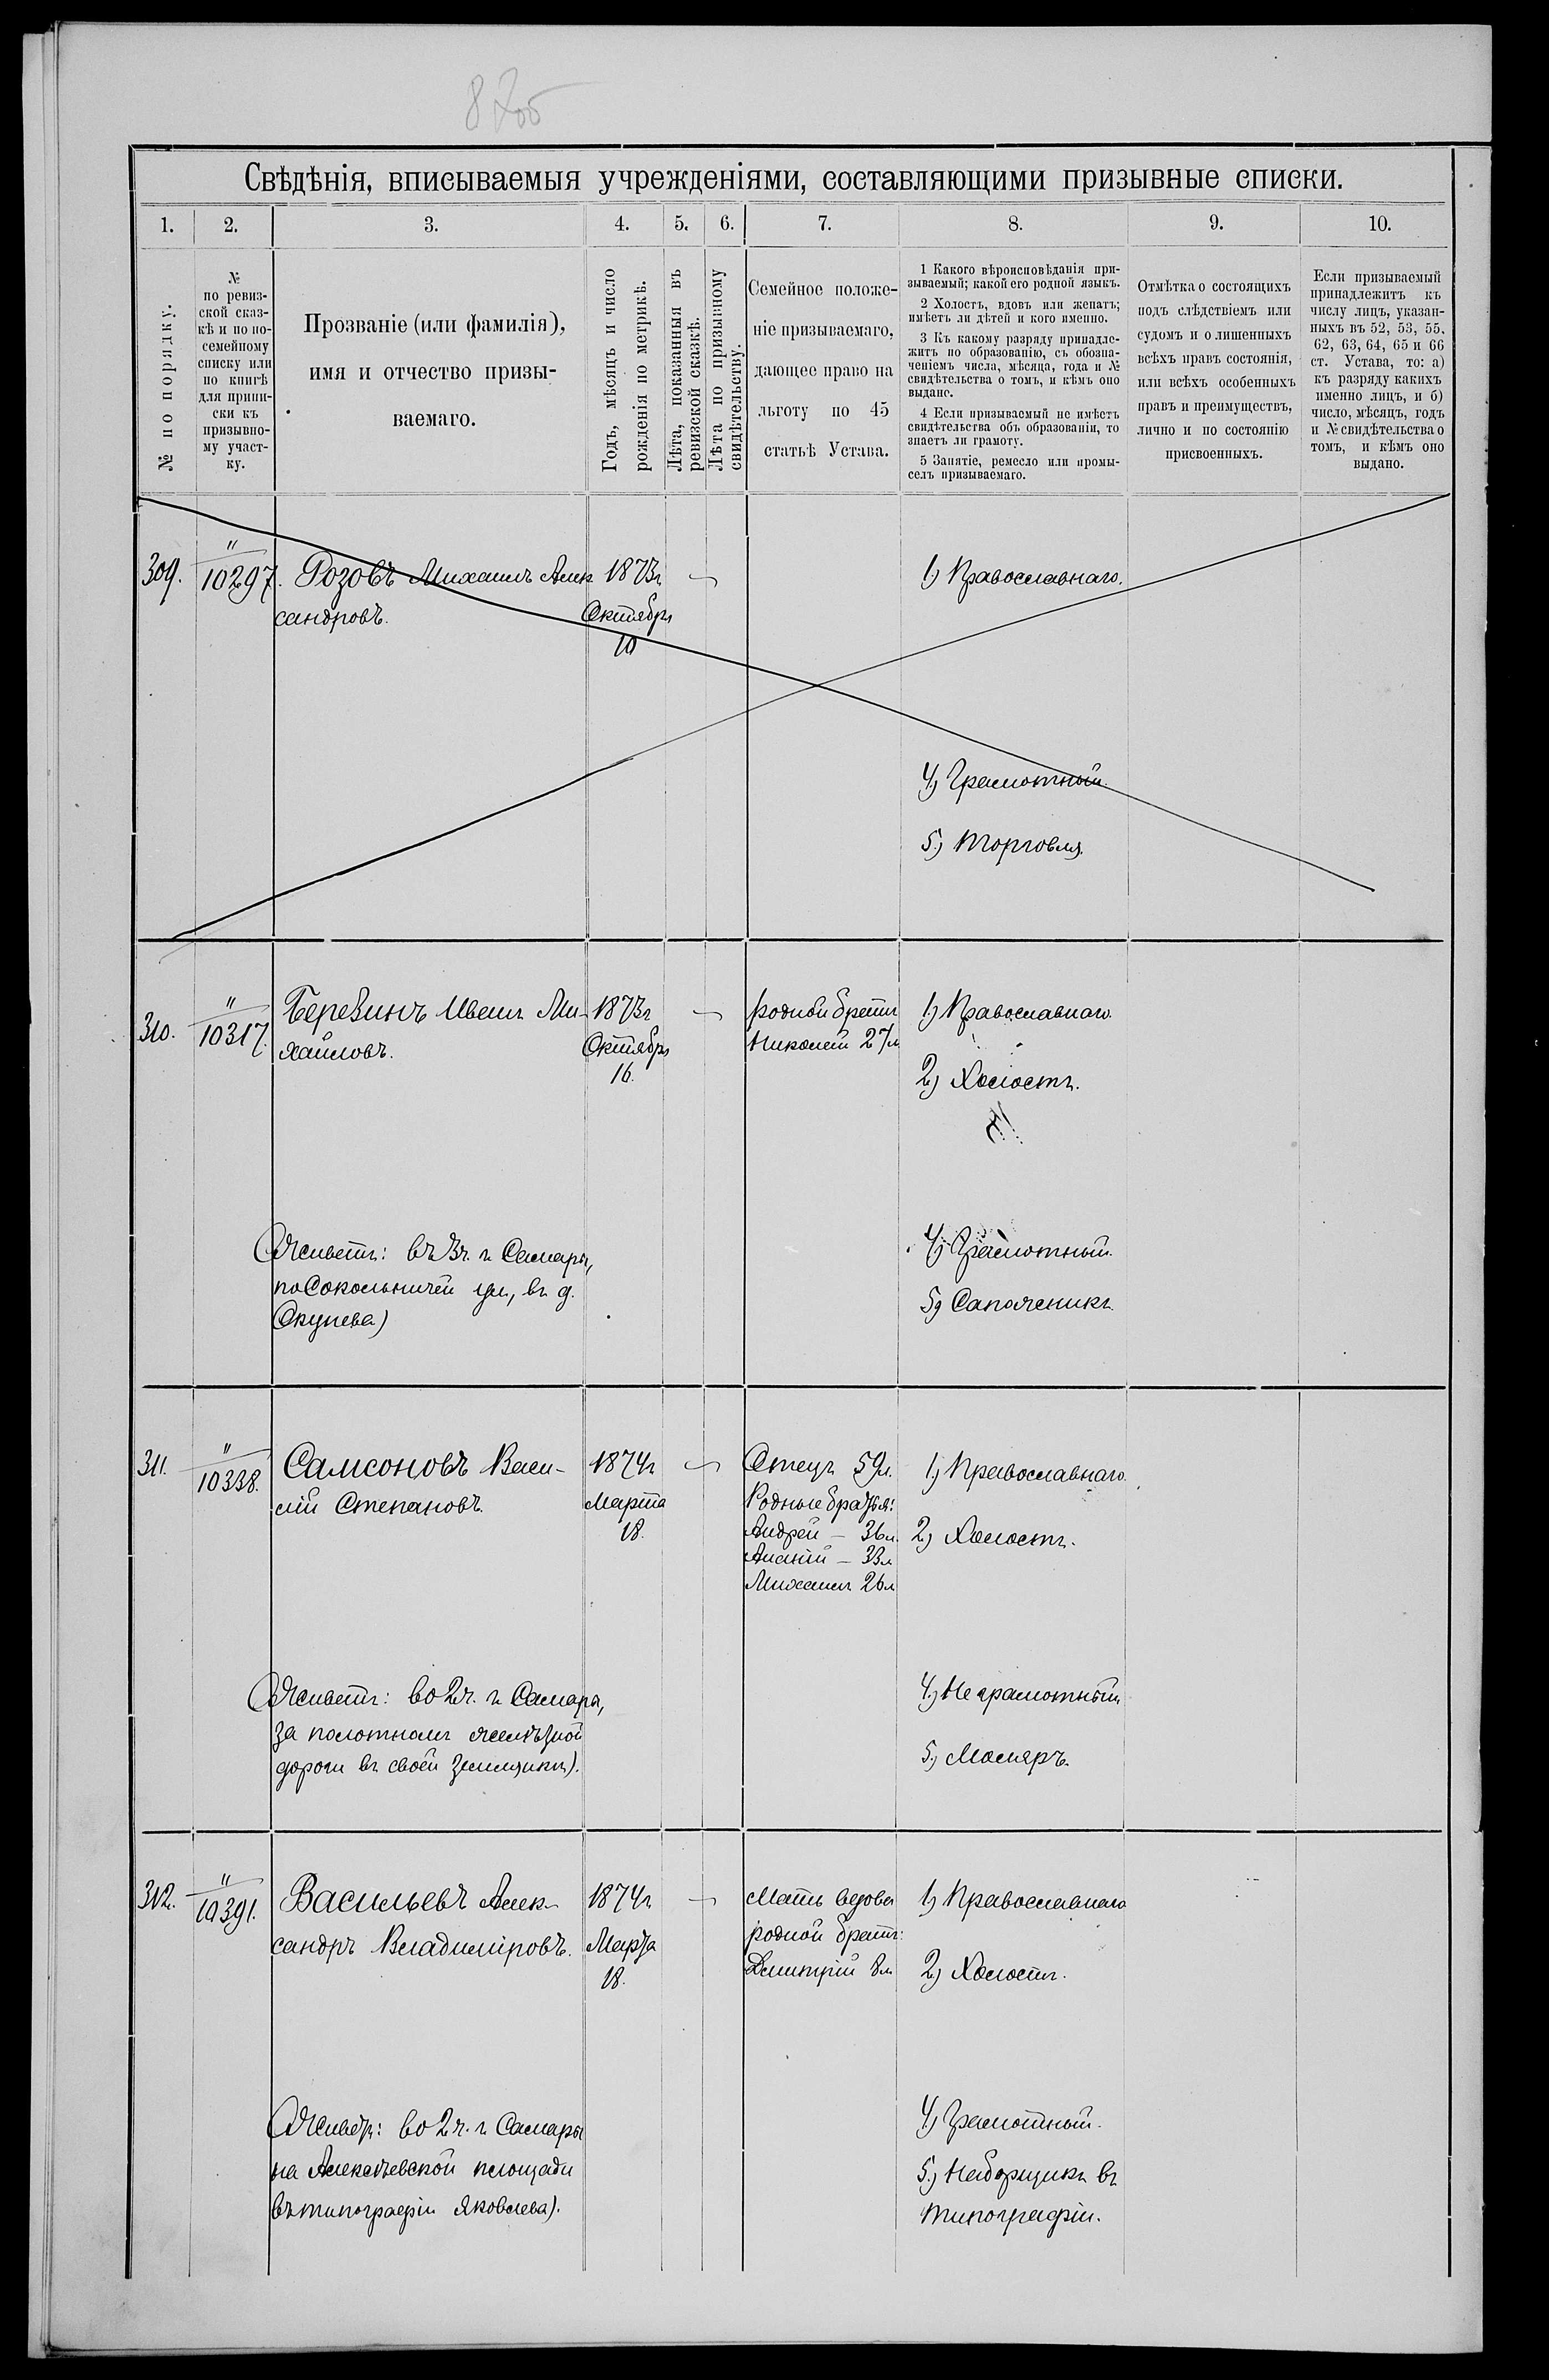 Свѣдѣнія, вписываемыя учрежденіями, составляющими призывные списки.
1. 2. 3. 4. 5. 6. 7. 8. 9. 10.
№ по порядку.
№
по ревиз-
ской сказ-
кѣ и по по-
семейному
списку или
по книгѣ
для припи-
ски къ
призывно-
му участ-
ку.
Прозваніе (или фамилія),
имя и отчество призы-
ваемаго.
Годъ, мѣсяцъ и число
рожденія по метрикѣ.
Лѣта, показанныя въ
ревизской сказкѣ.
Лѣта по призывному
свидѣтельству.
Семейное положе-
ніе призываемаго,
дающее право на
льготу по 45
статьѣ Устава.
1 Какого вѣроисповѣданія при-
зываемый; какой его родной языкъ.
2 Холостъ, вдовъ или женатъ;
имѣетъ ли дѣтей и кого именно.
3 Къ какому разряду принадле-
житъ по образованію, съ обозна-
ченіемъ числа, мѣсяца, года и №
свидѣтельства о томъ, и кѣмъ оно
выдано.
4 Если призываемый не имѣетъ
свидѣтельства объ образованіи, то
знаетъ ли грамоту.
5 Занятіе, ремесло или промы-
селъ призываемаго.
Отмѣтка о состоящихъ
подъ слѣдствіемъ или
судомъ и о лишенныхъ
всѣхъ правъ состоянія,
или всѣхъ особенныхъ
правъ и преимуществъ,
лично и по состоянію
присвоенныхъ.
Если призываемый
принадлежитъ къ
числу лицъ, указан-
ныхъ въ 52, 53, 55,
62, 63, 64, 65 и 66
ст. Устава, то: а)
къ разряду какихъ
именно лицъ, и б)
число, мѣсяцъ, годъ
и № свидѣтельства о
томъ, и кѣмъ оно
выдано.
309.
"
10297.
Розовъ Михаилъ Алек
сандровъ.
1873г
Октября
10
1) Православнаго.
4) Грамотный.
5) Торговля.
310.
"
10317.
Березинъ Иванъ Ми-
хайловъ.
1873г
Октября
16.
родной братъ
Николай 27л
1) Православнаго.
2) Холостъ.
(Живетъ: въ 3ч. г. Самары,
по Сокольничей ул., въ д.
Окунева)
4) Грамотный.
5) Сапожникъ.
311.
"
10338.
Самсоновъ Васи-
лій Степановъ.
1874г
Марта
18.
Отецъ 59л.
Родные братья:
Андрей – 36л.
Ананій – 33л
Михаилъ 26л
1) Православнаго.
2) Холостъ.
(Живетъ: во 2ч. г. Самары,
за полотномъ желѣзной
дороги въ своей землянкѣ).
4) Неграмотный
5) Маляръ.
312.
"
10391.
Васильевъ Алек-
сандръ Владиміровъ.
1874г
Марта
18.
Мать вдова
родной братъ:
Дмитрій 8л.
1) Православнаго
2) Холостъ.
(Живетъ: во 2ч. г. Самары
на Алексѣевской площади
въ типографіи Яковлева).
4) Грамотный.
5) Наборщикъ въ
типографіи.